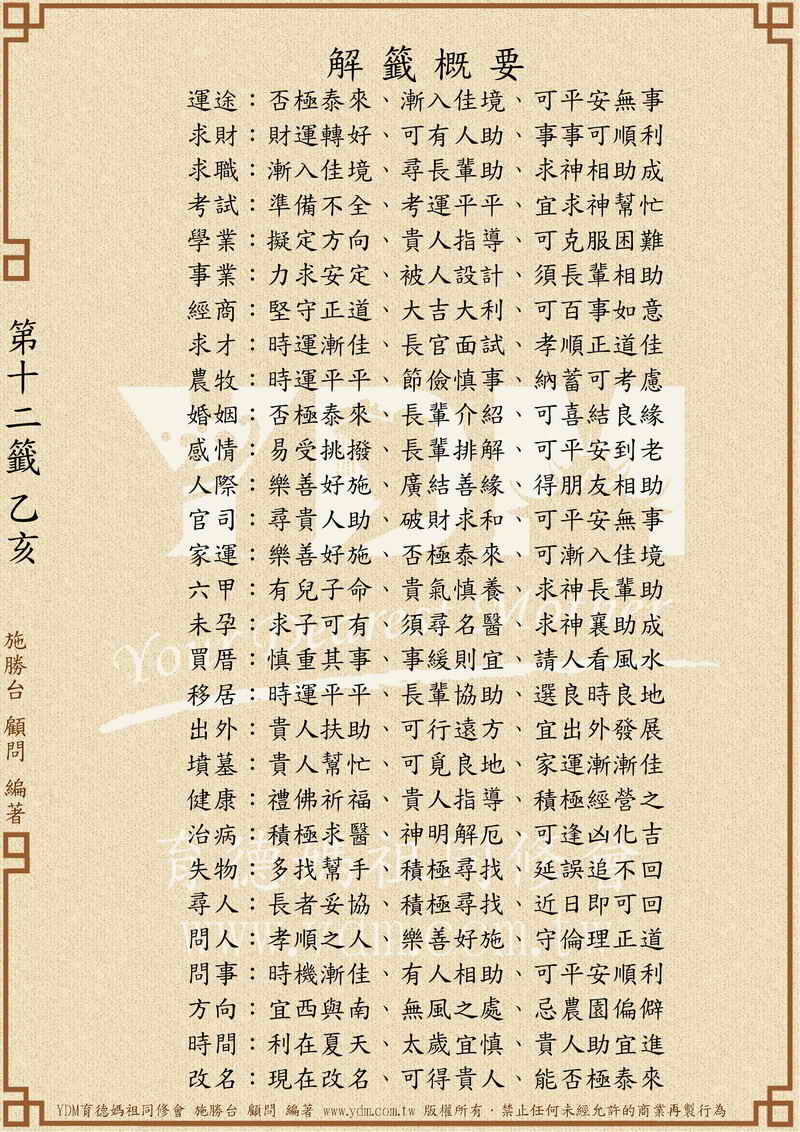 解籤概要
運途：否極泰來、漸入佳境、可平安無事
求財：財運轉好、可有人助、事事可順利
求職：漸入佳境、尋長輩助、求神相助成
考試：準備不全、考運平平、宜求神幫忙
學業：擬定方向、貴人指導、可克服困難
事業：力求安定、被人設計、須長輩相助
經商：堅守正道、大吉大利、可百事如意
求才：時運漸佳、長官面試、孝順正道佳
農牧：時運平平、節儉慎事、納蓄可考慮
婚姻：否極泰來、長輩介紹、可喜結良緣
感情：易受挑撥、長輩排解、可平安到老
人際：樂善好施、廣結善緣、得朋友相助
官司：尋貴人助、破財求和、可平安無事
家運：樂善好施、否極泰來、可漸入佳境
六甲：有兒子命、貴氣慎養、求神長輩助
未孕：求子可有、須尋名醫、求神襄助成
買厝：慎重其事、事緩則宜、請人看風水
移居：時運平平、長輩協助、選良時良地
出外：貴人扶助、可行遠方、宜出外發展
墳墓：貴人幫忙、可覓良地、家運漸漸佳
健康：禮佛祈福、貴人指導、積極經營之
治病：積極求醫、神明解厄、可逢凶化吉
失物：多找幫手、積極尋找、延誤追不回
尋人：長者妥協、積極尋找、近日即可回
問人：孝順之人、樂善好施、守倫理正道
問事：時機漸佳、有人相助、可平安順利
方向：宜西與南、無風之處、忌農園偏僻
時間：利在夏天、太歲宜慎、貴人助宜進
改名：現在改名、可得貴人、能否極泰來
第十二籤 乙亥
施勝台 顧問 編著
YDM
Your Dearest Mother
育德媽祖同修會
www.ydm.com.tw
YDM育德媽祖同修會 施勝台 顧問 編著 www.ydm.com.tw 版權所有．禁止任何未經允許的商業再製行為